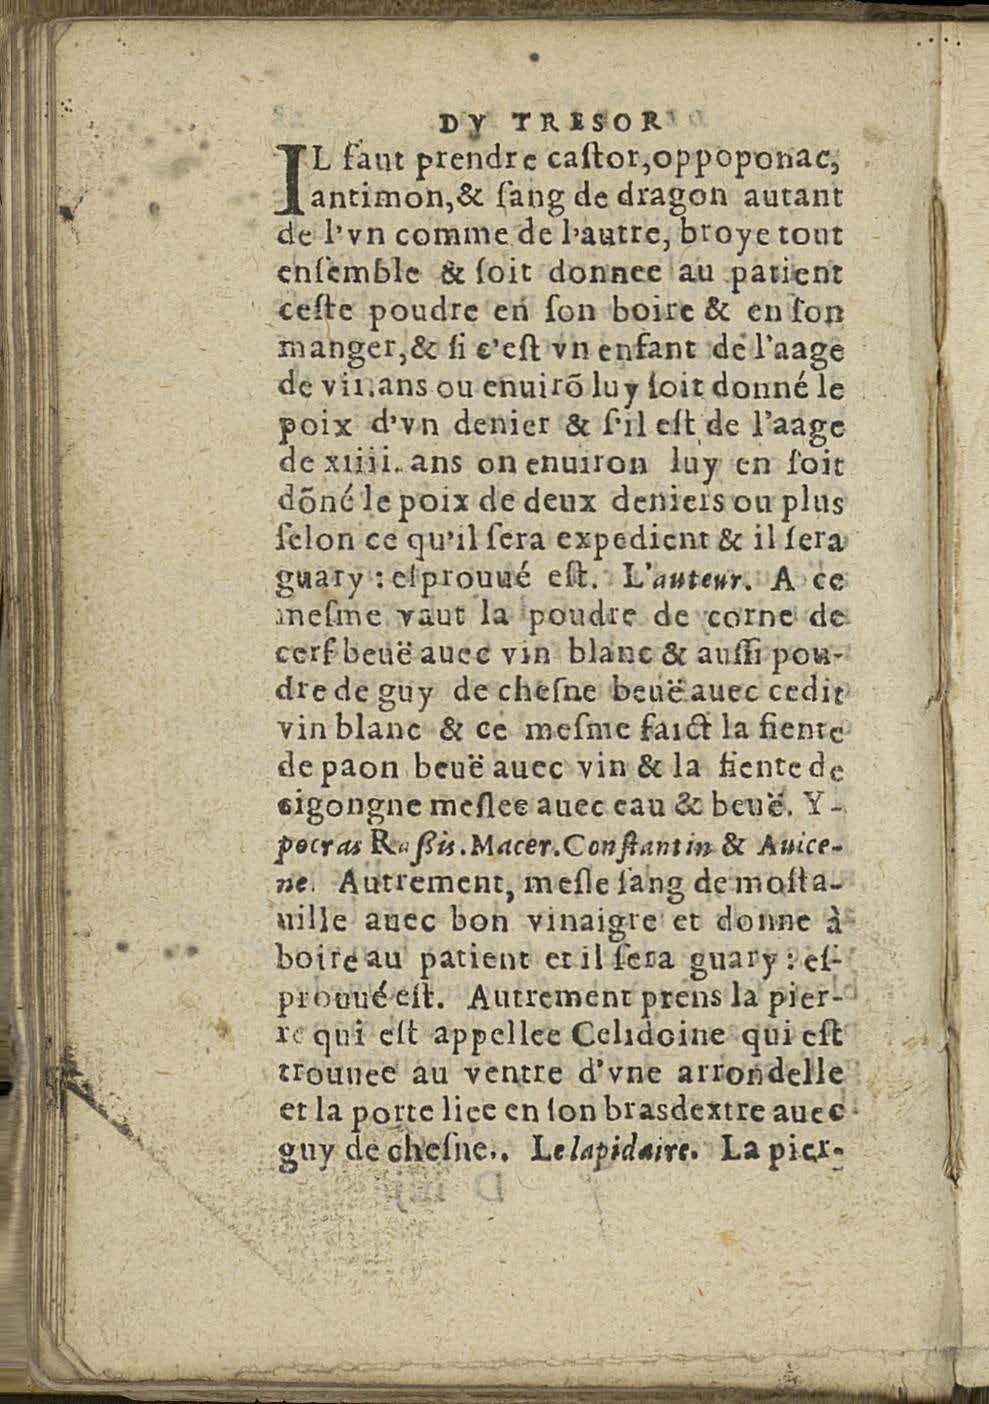 DV TRESOR
IL faut prendre caſtor,oppoponac,
antimon,& ſang de dragon autant
de l'vn comme de l'autre, broye tout
enſemble & ſoit donnee au patient
ceſte poudre en ſon boire & en ſon
manger,& ſi c'eſt vn enfant de l'aage
de vii.ans ou enuirõ luy ſoit donné le
poix d'vn denier & ſ'il eſt de l'aage
de xiiii. ans on enuiron luy en ſoit
dõné le poix de deux deniers ou plus
ſelon ce qu'il ſera expedient & il ſera
guary : eſprouué eſt. L'auteur. A ce
meſme vaut la poudre de corne de
cerf beuë auec vin blanc & auſſi pou-
dre de guy de cheſne beuë auec cedit
vin blanc & ce meſme faict la fiente
de paon beuë auec vin & la fiente de
cigongne meſlee auec eau & beuë. Y-
pocras Raſis. Macer. Conſtantin & Auice-
ne. Autrement, meſle ſang de moſta-
uille auec bon vinaigre et donne à
boire au patient et il ſera guary : eſ-
prouué eſt. Autrement prens la pier-
re qui eſt appellee Celidoine qui eſt
trouuee au ventre d'vne arrondelle
et la porte liee en ſon bras dextre auec
guy de cheſne.. Le lapidaire. La pier-